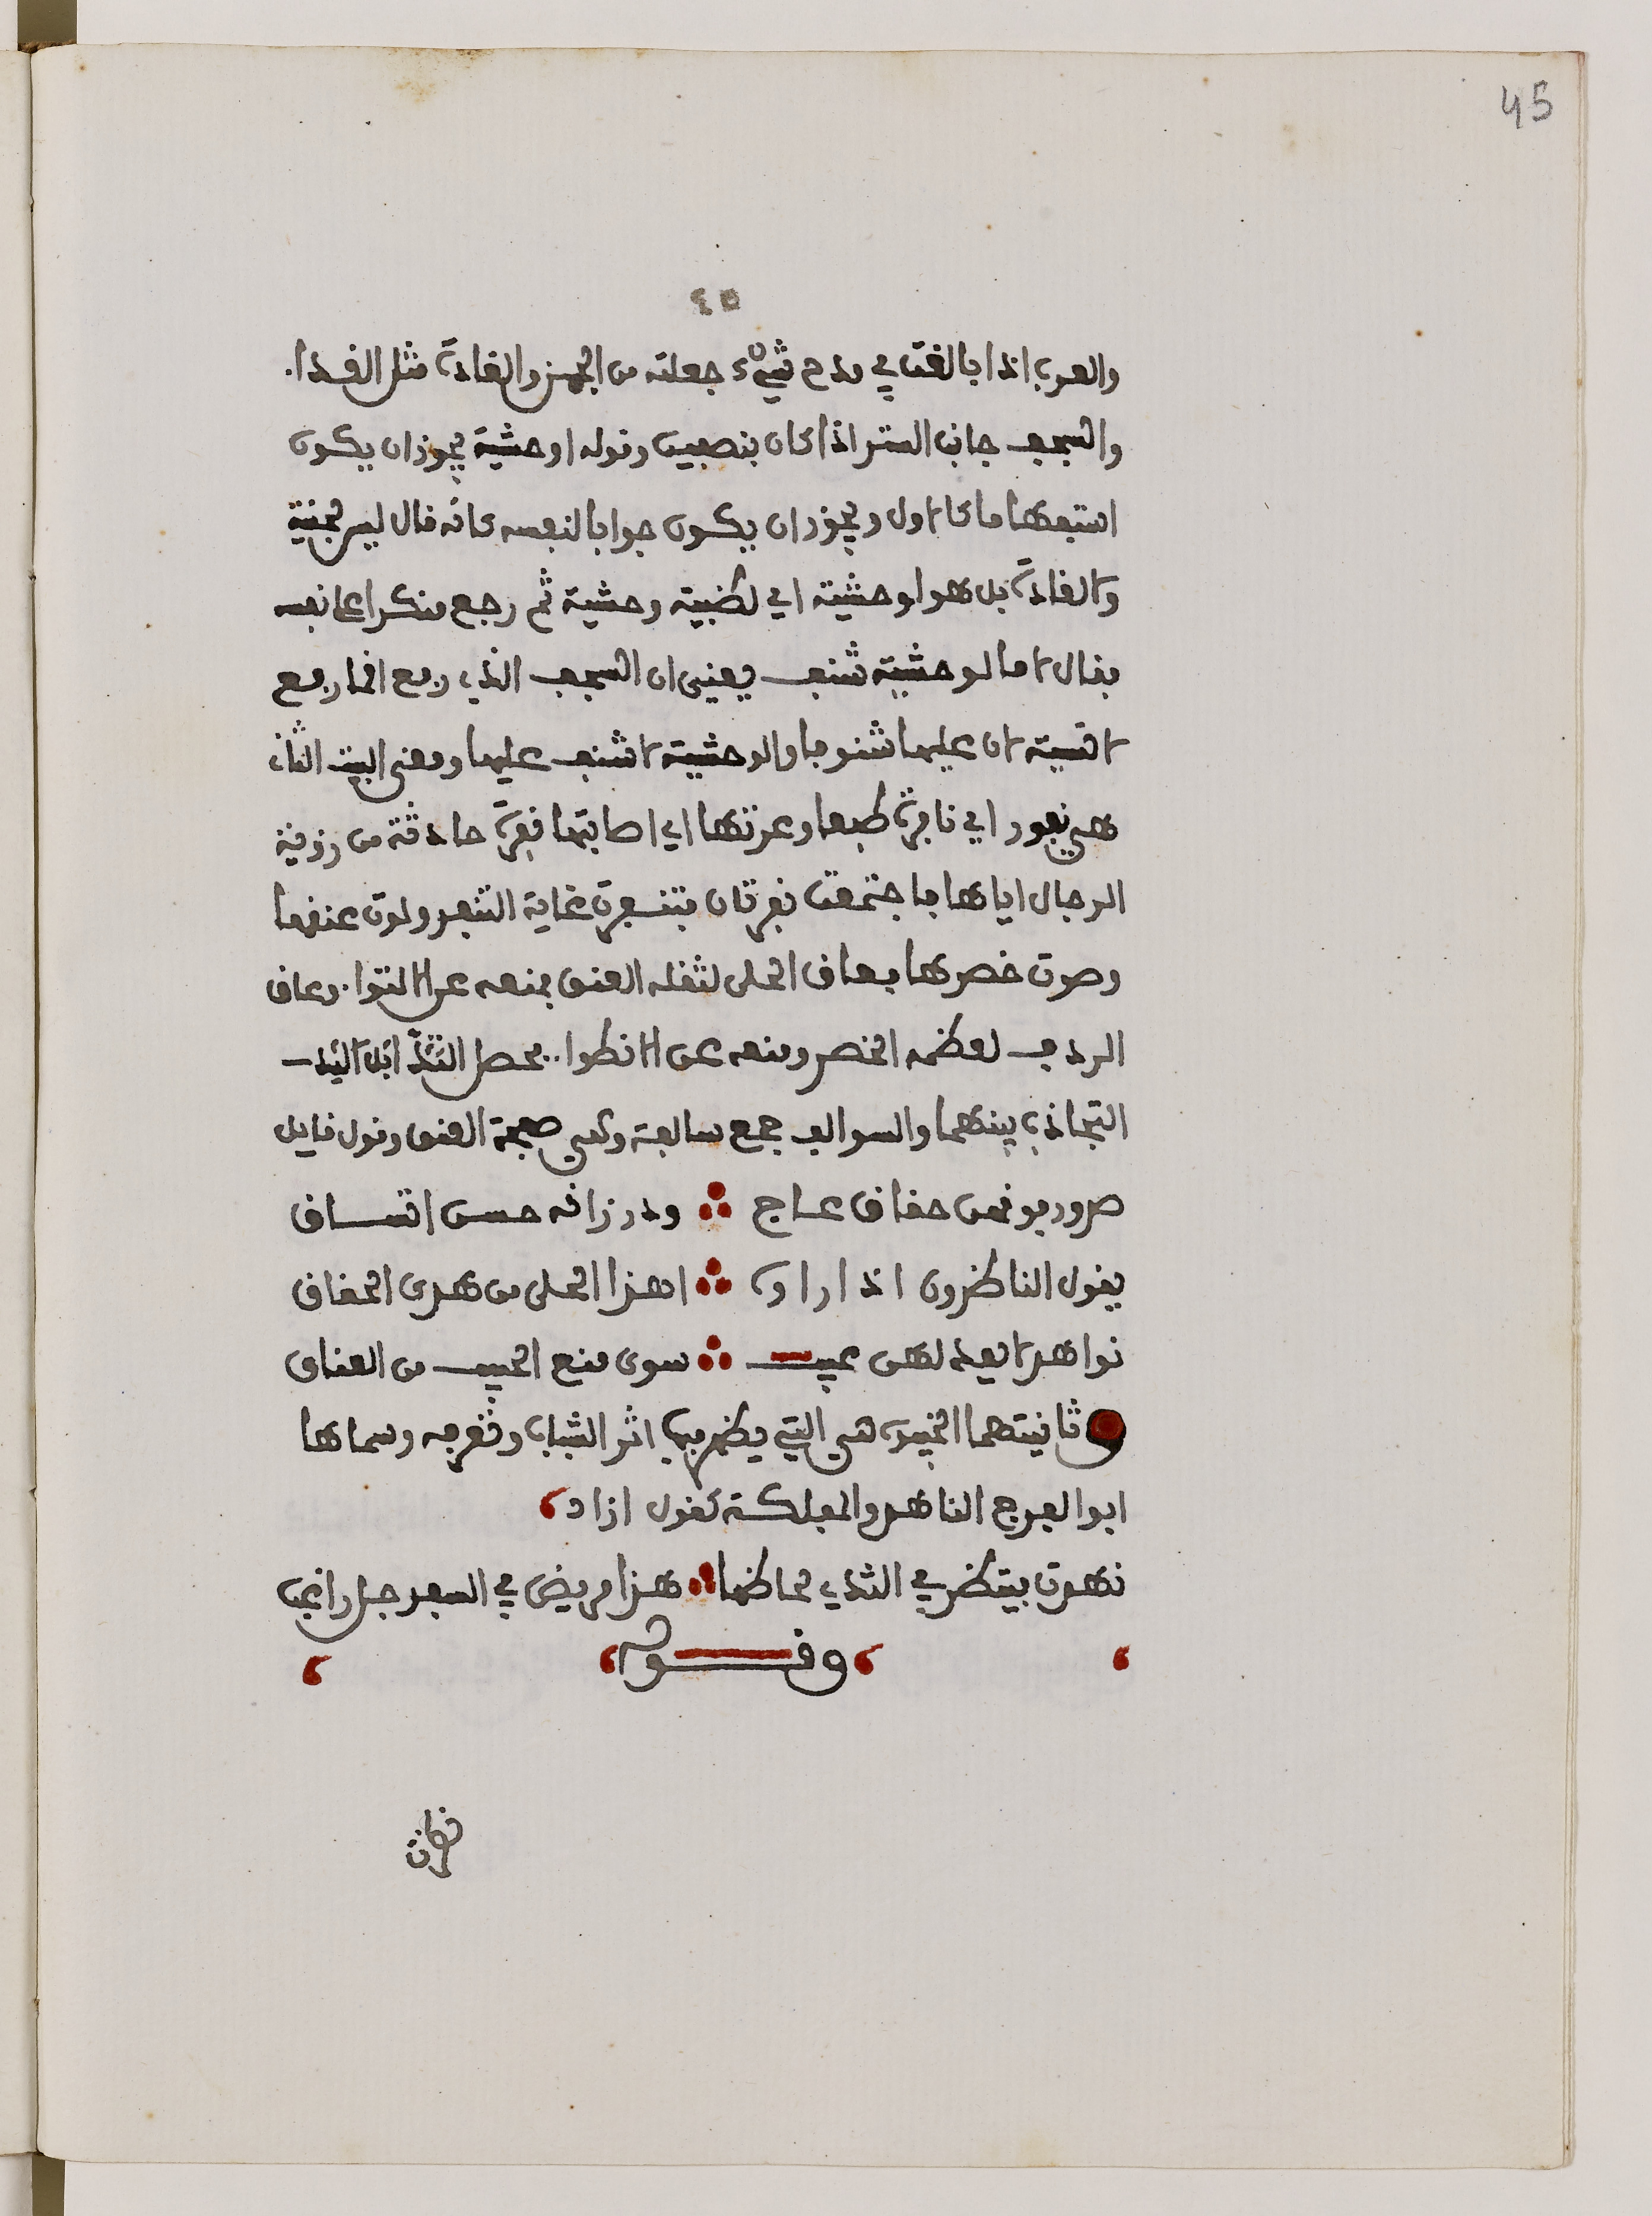 45
٤٥
والعرب اذا بالغت في مدح شيء جعلته من الجن والغادة مثل الغيدا.
والسجف جانب الستر اذا كان بنصبين وقوله او حشية يجوز ان يكون
استفهاما كالاول ويجوز ان يكون جوابا لنفسه كانه قال ليس لجنية
ولا لغادة بل هو لوحشية اي لظبية وحشية ثم رجع منكرا على نفسه
فقال لا ما لوحشية شنف يعني ان السجف الذي رفع انما رفع
لانسية لان عليها شنوفا والوحشية لا شنف عليها ومعنى البيت الثاني
هي نفور اي نافرة طبعا وعرتها اي اصابتها نفرة حادثة من رؤية
الرجال اياها فاجتمعت نفرتان فتنفرت غاية التنفر ولوت عنقها
وصوت خصرها فعاق الحلى لثقله العنق فمنعه عن الالتوا. وعاق
الردف لعظمه الخصر ومنعه عن الانطوا.. فحصل
التجاذب بينهما والسوالف جمع سالفة وهي صفحة العنق وقول قايل
صرور فوقهن حقاق عاج ∴ ودر زانه حسن اتساق
يقول الناظرون اذا راوه ∴ اهذا الحلى من هذي الحقاق
نواهد لا يعد لهن عيب ∴ سوى منع الحبيب من العناق
وثانيتهما هي التي يظهر بها اثر الشباب وتعرفه وسماها
ابو الفرج الناهد والمفلكة كقول ازاد
نهدت فينظر في الثدي لحاظها ∴ هذا مريض في السفرجل راغب
وقوله
نظرت